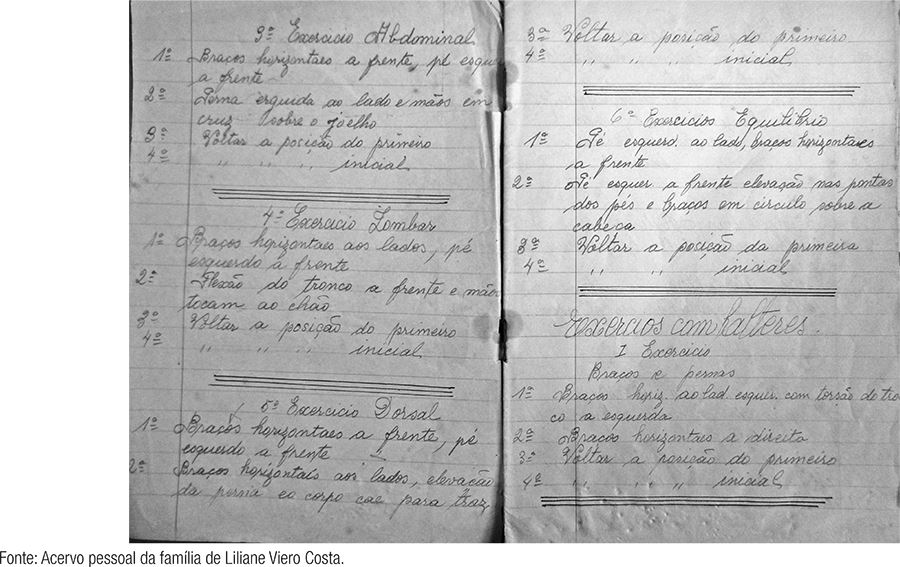 3º Exercicio Abdominal
1º Braços horizontaes a frente, pé esquer
a frente
2º Perna erguida ao lado e mãos em
cruz sobre o joelho
3º Voltar a posição do primeiro
4º ,, ,, ,, inicial
4º Exercicio Lombar
1º Braços horizontaes aos lados, pé
esquerdo á frente
2º Flexão do tronco a frente e mãos
tocam ao chão
3º Voltar a posição do primeiro
4º ,, ,, ,, inicial
5º Exercicio Dorsal
1º Braços horizontaes a frente, pé
esquerdo a frente
2º Braços horizontais aos lados, elevação
da perna e o corpo cae para traz
3º Voltar a posição do primeiro
4º ,, ,, ,, inicial
6º Exercicios Equilibrio
1º Pé esquerd. ao lado, braços horizontaes
a frente
2º Pé esquer. a frente elevação nas pontas
dos pés e braços em circulo sobre a
cabeça
3º Voltar a posição da primeira
4º ,, ,, ,, inicial
Exercios com halteres.
I Exercicio
Braços e pernas
1º Braços horiz. ao lad. esquer. com torsão do tro
co a esquerda
2º Braços horizontaes a direita
3º Voltar a posição do primeiro
4º ,, ,, ,, inicial
Fonte: Acervo pessoal da família de Liliane Viero Costa.